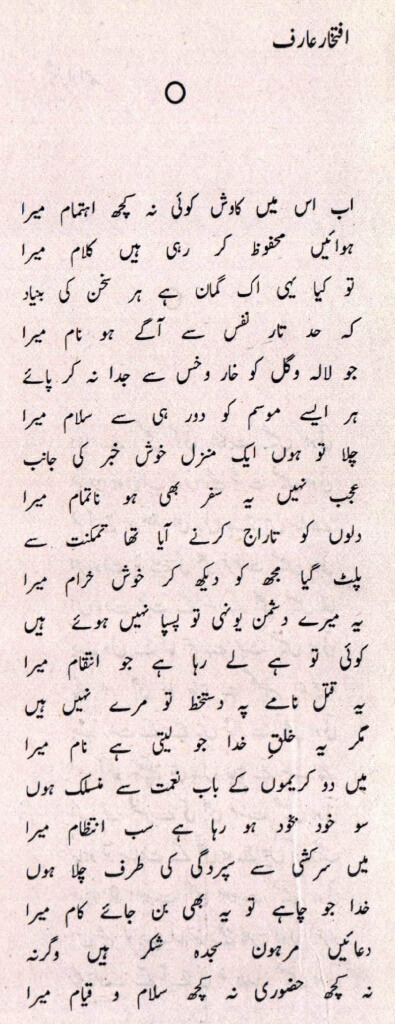 افتخار عارف
اب اس میں کاوش کوئی نہ کچھ اہتمام میرا
ہوائیں محفوظ کر رہی ہیں کلام میرا
تو کیا یہی اک گمان ہے ہر سخن کی بنیاد
کہ حد تارِ نفس سے آگے ہو نام میرا
جو لالہ وگل کو خار وخس سے جدا نہ کر پائے
ہر ایسے موسم کو دور ہی سے سلام میرا
چلا تو ہوں ایک منزل خوش خبر کی جانب
عجب نہیں یہ سفر بھی ہو ناتمام میرا
دلوں کو تاراج کرنے آیا تھا تمکنت سے
پلٹ گیا مجھ کو دیکھ کر خوش خرام میرا
یہ میرے دشمن یونہی تو پسپا نہیں ہوئے ہیں
کوئی تو ہے لے رہا ہے جو انتقام میرا
یہ قتل نامے پہ دستخط تو مرے نہیں ہیں
مگر یہ خلقِ خدا جو لیتی ہے نام میرا
میں دو کریموں کے باب نعمت سے منسلک ہوں
سو خود بخود ہو رہا ہے سب انتظام میرا
میں سرکشی سے سپردگی کی طرف چلا ہوں
خدا جو چاہے تو یہ بھی بن جائے کام میرا
دعائیں مرہون سجدہ شکر ہیں وگرنہ
نہ کچھ حضوری نہ کچھ سلام و قیام میرا